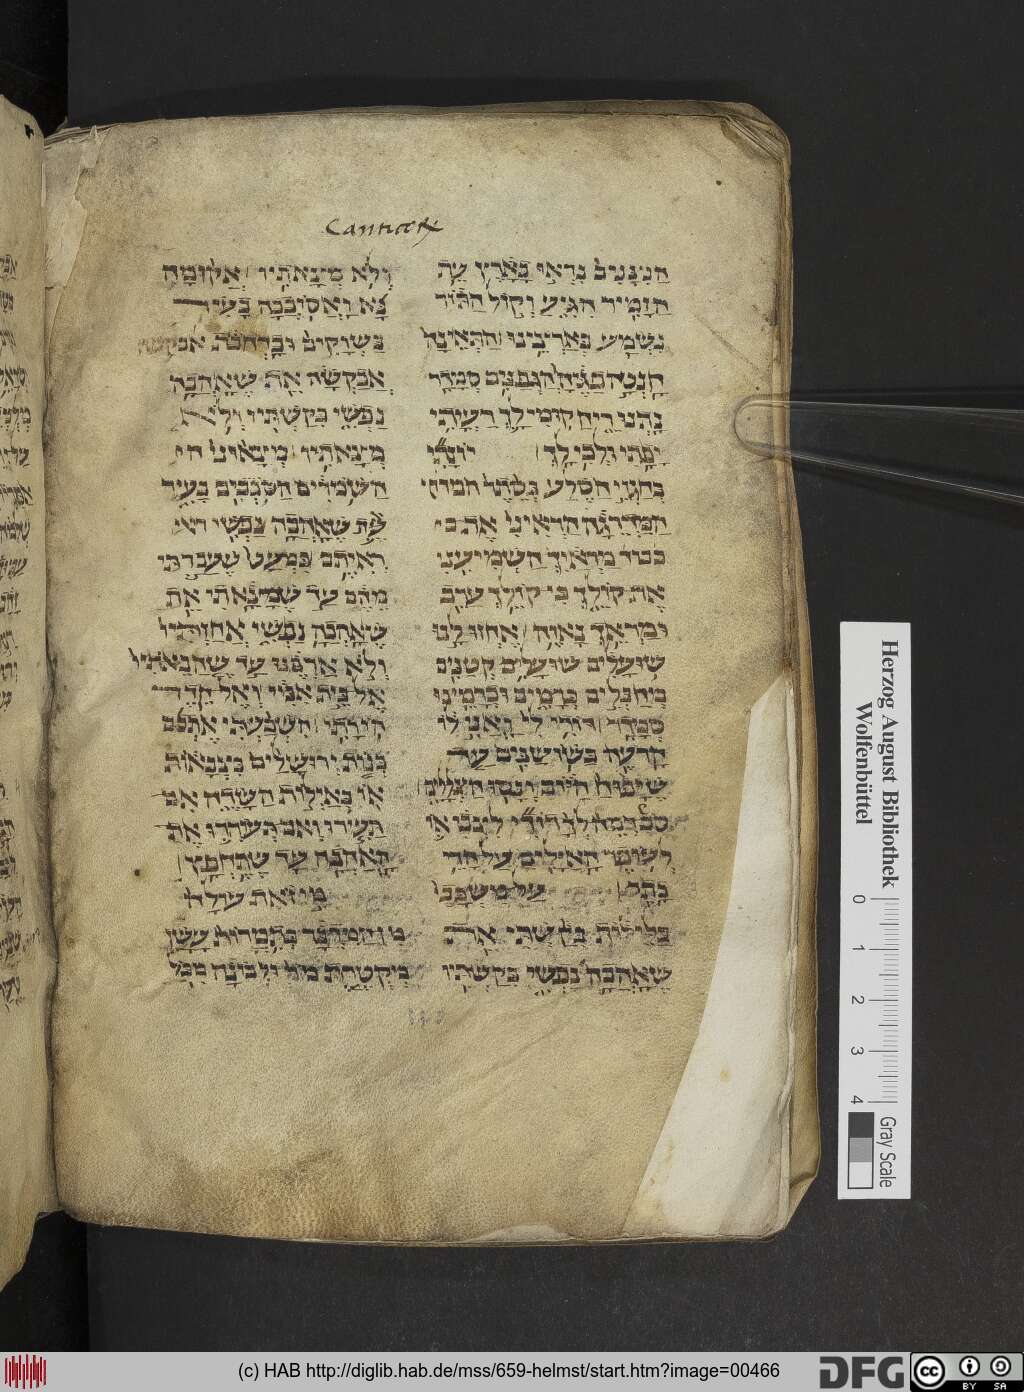 Canticor
הנצנים נראו בארץ עת
הזמיר הגיע וקול התור
נשמע בארצינו התאינה
חנטה פגיה הגפנים סמדר
נתנו ריח קומי לך רעיתי
יפתי ולכי לך יונתי
בחגוי הסלע בסתר
המדרגה הראיני את
מראיך השמיעני
את קולך כי קולך ערב
ומראך נאוה אחזו לנו
שועלים שועלים קטנים
מחבלים כרמים וכרמינו
סמדר דודי לי ואני לו
הרעה בשושנים עד
שיפוח היום ונסו הצללים
סב דמה לך דודי לצבי או
לעופר האילים על הרי
בתר על משכבי
בלילות בקשתי את
שאהבה נפשי בקשתיו
ולא מצאתיו אקומה
נא ואסובבה בעיר
בשוקים וברחבות
אבקשה את שאהבה
נפשי בקשתיו ולא
מצאתיו מצאוני
השומרים הסבבים בעיר
את שאהבה נפשי
ראיתם כמעט שעברתי
מהם עד שמצאתי את
שאהבה נפשי אחזתיו
ולא ארפנו עד שהביאתיו
אל בית אמי ואל חדר
הורתי השבעתי אתכם
בנות ירושלים בצבאות
או באילות השדה אם
תעירו ואם תעוררו את
האהבה עד שתחפץ
מי זאת עולה
מן המדבר כתמרות עשן
מקטרת מור ולבונה מכל
Herzog August Bibliothek
Wolfenbüttel
0 1 2 3 4
Gray Scale
(c) HAB http://diglib.hab.de/mss/659-helmst/start.htm?image=00466
DFG
cc BY SA